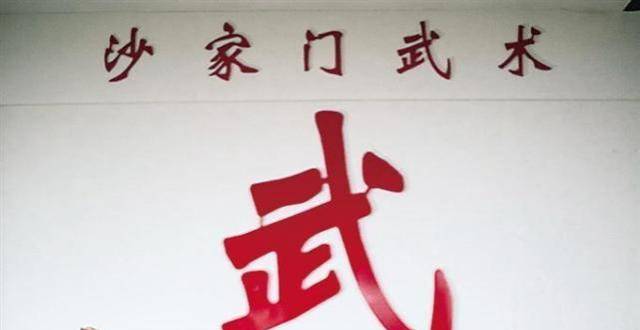 沙家门武术
武